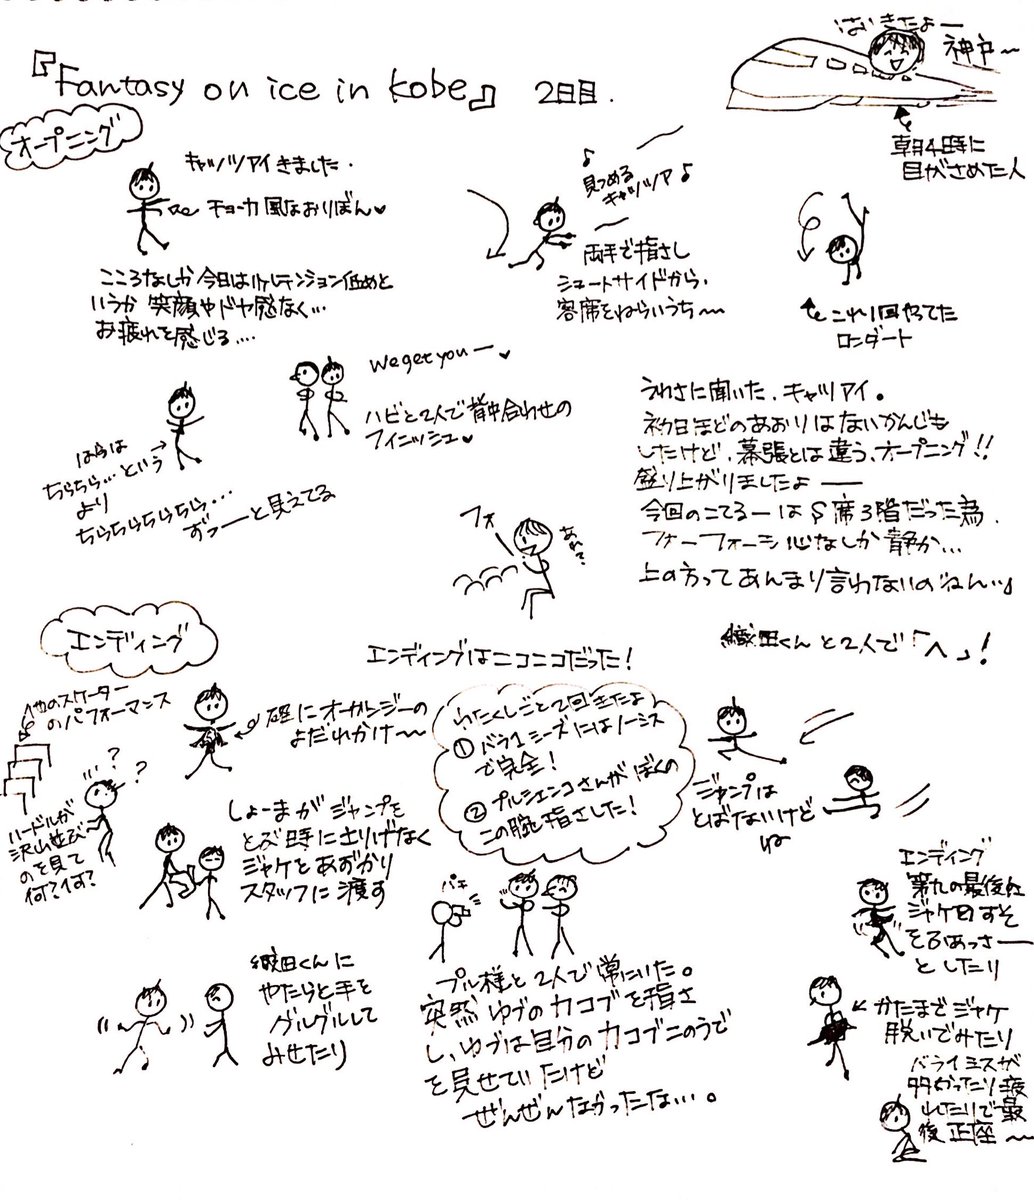 『Fantasy on ice in kobe』 2日目.
はいきたよー
神戸〜
朝4時に
目がさめた人
オープニング
キャッツアイきました.
チョーカー風なおりぼん♥
こころなしか今日はテンション低めと
いうか 笑顔やドヤ感なく…
お疲れを感じる….
♪
見つめる
キャッツアイ♪
両手で指さし
ショートサイドから,
客席をねらいうち〜
これ1回やってた
ロンダート
we get you ー♥
ハビと2人で背中合わせの
フィニッシュ♥
はらは
ちらちら…という
より
ちらちらちらちら…
ずっーと見えてる
うわさに聞いた、キャッツアイ。
初日ほどのあおりはないかんじも
したけど、幕張とは違う、オープニング!!
盛り上がりましたよー
今回のこてるーはS席3階だった為,
フォーフォーも心なしか静か…
上の方ってあんまり言わないのねん…」
フォ
あれ?
エンディング
エンディングはニコニコだった!
織田くんと2人で「へ」!
他のスケーター
のパフォーマンス
確にオールレンジーの
よだれかけ〜
わたくしごと2回きたよ
① バラ1シーズにはノーミス
で完全!
② プルシェンコさんがぼくの
この腕指さした!
ジャンプは
とばないけど
ね
ハードルが
沢山並ぶ
のを見て
何?何?
しょーまがジャンプを
とぶ時に さりげなく
ジャケとあずかり
スタッフに渡す
エンディング
第九の最後に
ジャケのすそ
をばあっさー
としたり
織田くんに
やたらと手を
グルグルして
みせたり
パチ
プル様と2人で常にいた。
突然ゆづの力コブを指さ
し、ゆづは自分の力コブこのうで
を見せていたけど
ぜんぜんなかったな…。
かたまでジャケ
脱いでみたり
バライミスが
多かったり疲
れたりで最
後正座〜